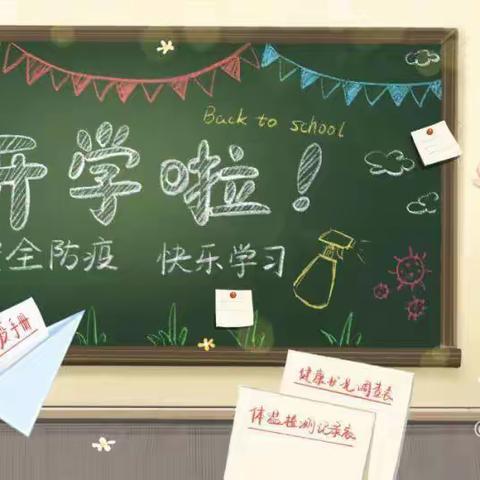 Back to school
开学啦！
全防疫 快乐学习
手册
健康状况调查表
体温检测记录表